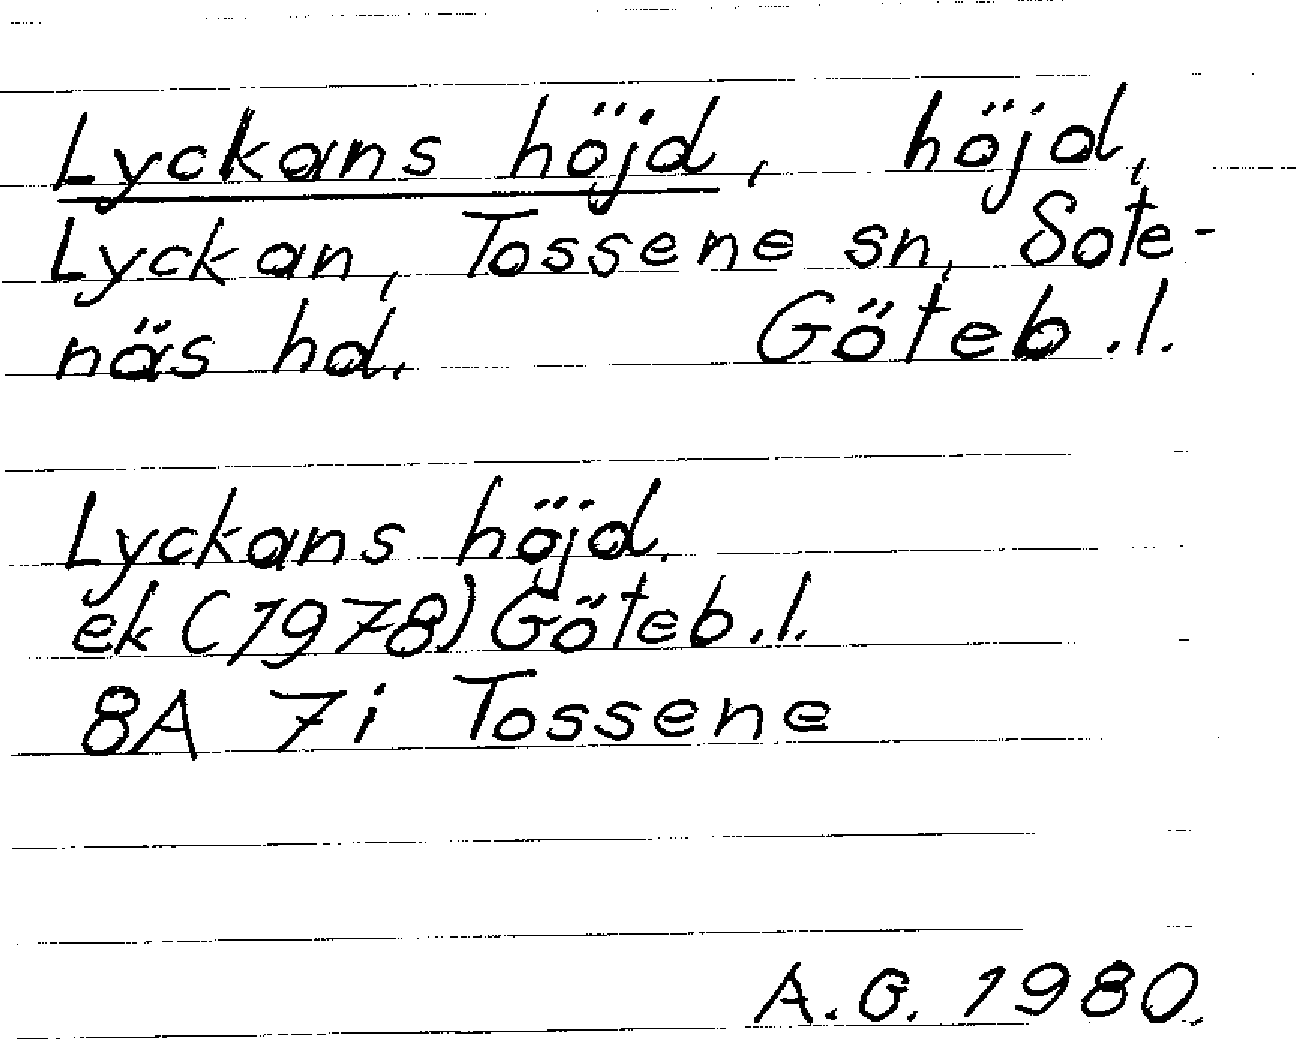 Lyckans höjd, höjd,
Lyckan, Tossene sn, Sote-
näs hd. Göteb.l.
Lyckans höjd.
ek (1978) Göteb.l.
8A 7i Tossene
A.G. 1980.